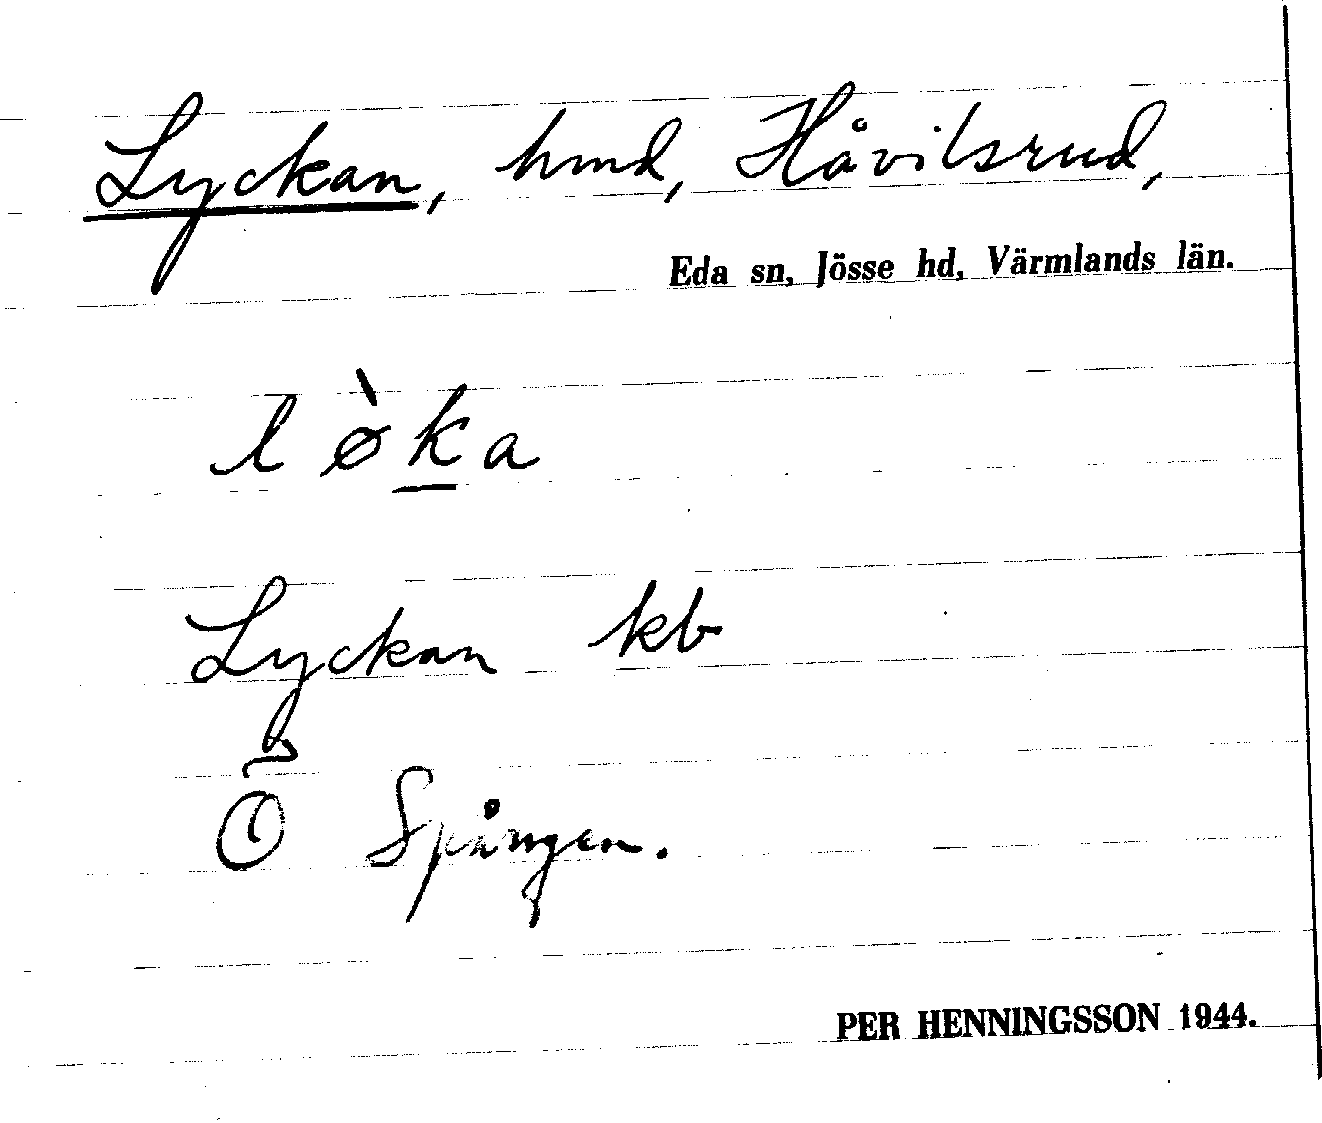 Lyckan, hmd, Håvilsrud,
Eda sn, Jösse hd, Värmlands län.
l ø̀ k̲ a
Lyckan kb
Ö Spången.
PER HENNINGSSON 1944.